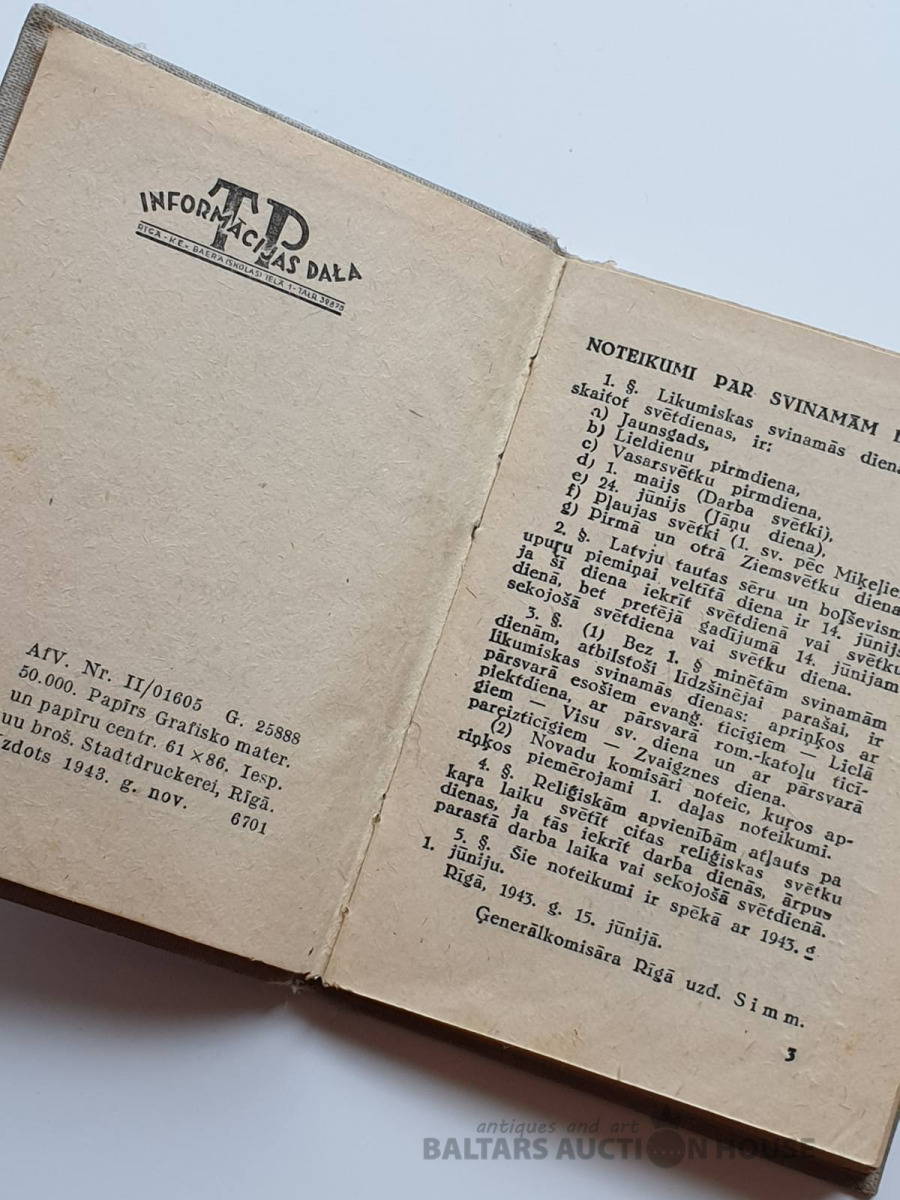 TP
INFORMĀCIJAS DAĻA
RĪGĀ - K.E. BAERA (SKOLAS) IELĀ 1 - TĀLR. 39875
AfV. Nr. II/01605 G. 25888
50.000. Papīrs Grafisko mater.
un papīru centr. 61×86. Iesp.
uu broš. Stadtdruckerei, Rīgā.
zdots 1943. g. nov.
6701
NOTEIKUMI PAR SVINAMĀM
1. §. Likumiskas svinamās diena
skaitot svētdienas, ir:
a) Jaunsgads,
b) Lieldienu pirmdiena,
c) Vasarsvētku pirmdiena,
d) 1. maijs (Darba svētki),
e) 24. jūnijs (Jāņu diena),
f) Pļaujas svētki (1. sv. pēc Miķeļie
g) Pirmā un otrā Ziemsvētku diena
2. §. Latvju tautas sēru un boļševism
upuŗu piemiņai veltītā diena ir 14. jūnijs
ja šī diena iekrīt svētdienā vai svētku
dienā, bet pretējā gadījumā 14. jūnijam
sekojošā svētdiena vai svētku diena.
3. §. (1) Bez 1. § minētām svinamām
dienām, atbilstoši līdzšinējai parašai, ir
likumiskas svinamās dienas: apriņķos ar
pārsvarā esošiem evaņg. ticīgiem — Lielā
piektdiena, ar pārsvarā rom.-katoļu ticī-
giem — Visu sv. diena un ar pārsvarā
pareizticīgiem — Zvaigznes diena.
(2) Novadu komisāri noteic, kuŗos ap-
riņķos piemērojami 1. daļas noteikumi.
4. §. Reliģiskām apvienībām atļauts pa
kaŗa laiku svētīt citas reliģiskas svētku
dienas, ja tās iekrīt darba dienās, ārpus
parastā darba laika vai sekojošā svētdienā.
5. §. Šie noteikumi ir spēkā ar 1943. g
1. jūniju.
Rīgā, 1943. g. 15. jūnijā.
Ģenerālkomisāra Rīgā uzd. Simm.
3
antiques and art
BALTARS AUCTION HOUSE